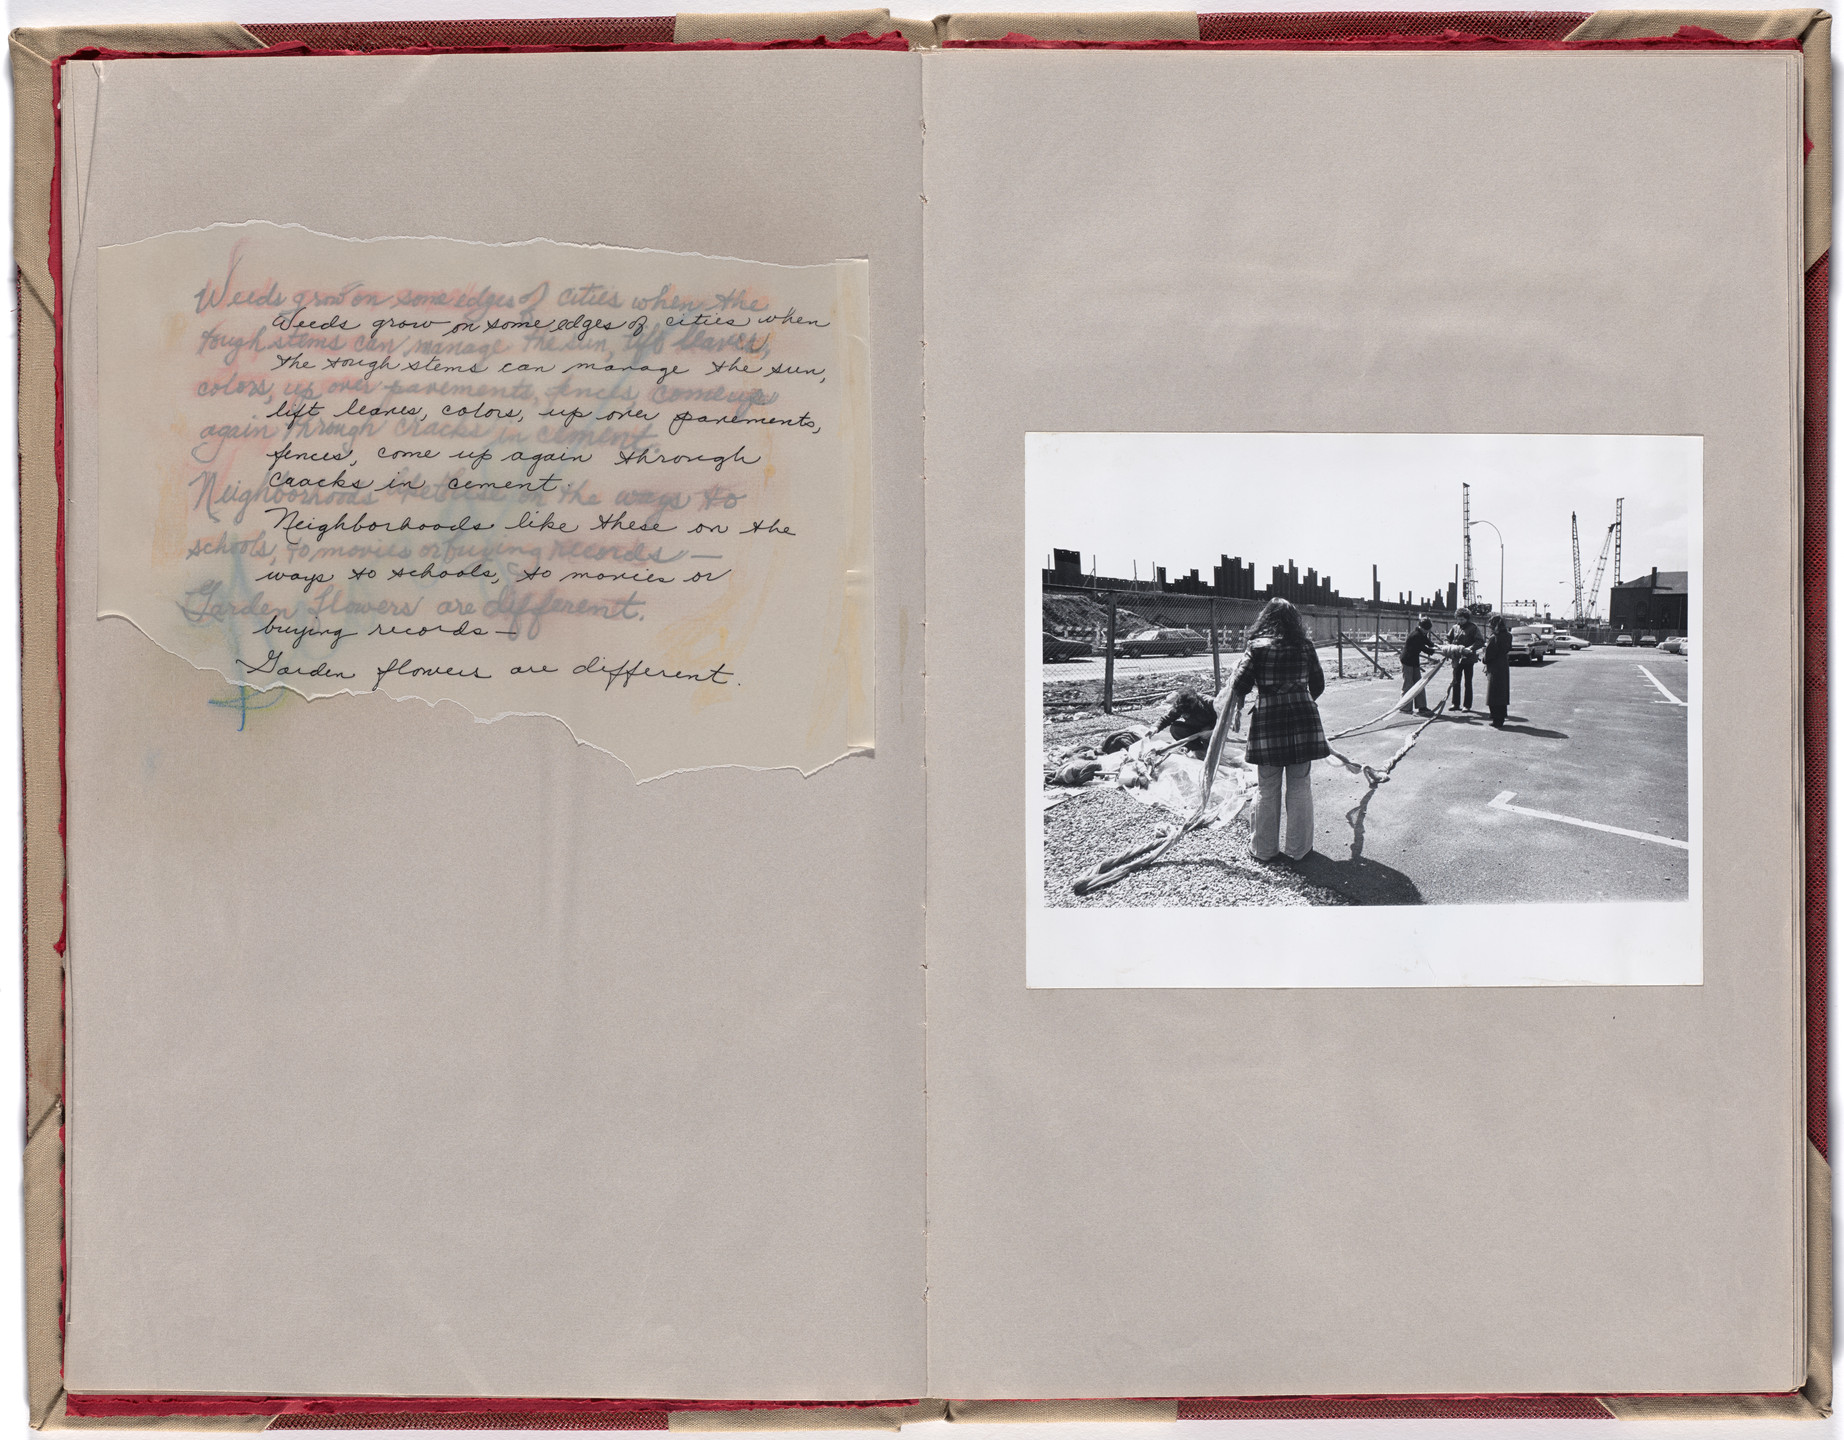 Weeds grow on some edges of cities when the
tough stems can manage the sun, lift leaves,
colors, up over pavements, fences, come up
again through cracks in cement.
Neighborhoods like these on the ways to
schools, to movies or buying records —
Garden flowers are different.
Weeds grow on some edges of cities when
the tough stems can manage the sun,
lift leaves, colors, up over pavements,
fences, come up again through
cracks in cement.
Neighborhoods like these on the
ways to schools, to movies or
buying records —
Garden flowers are different.